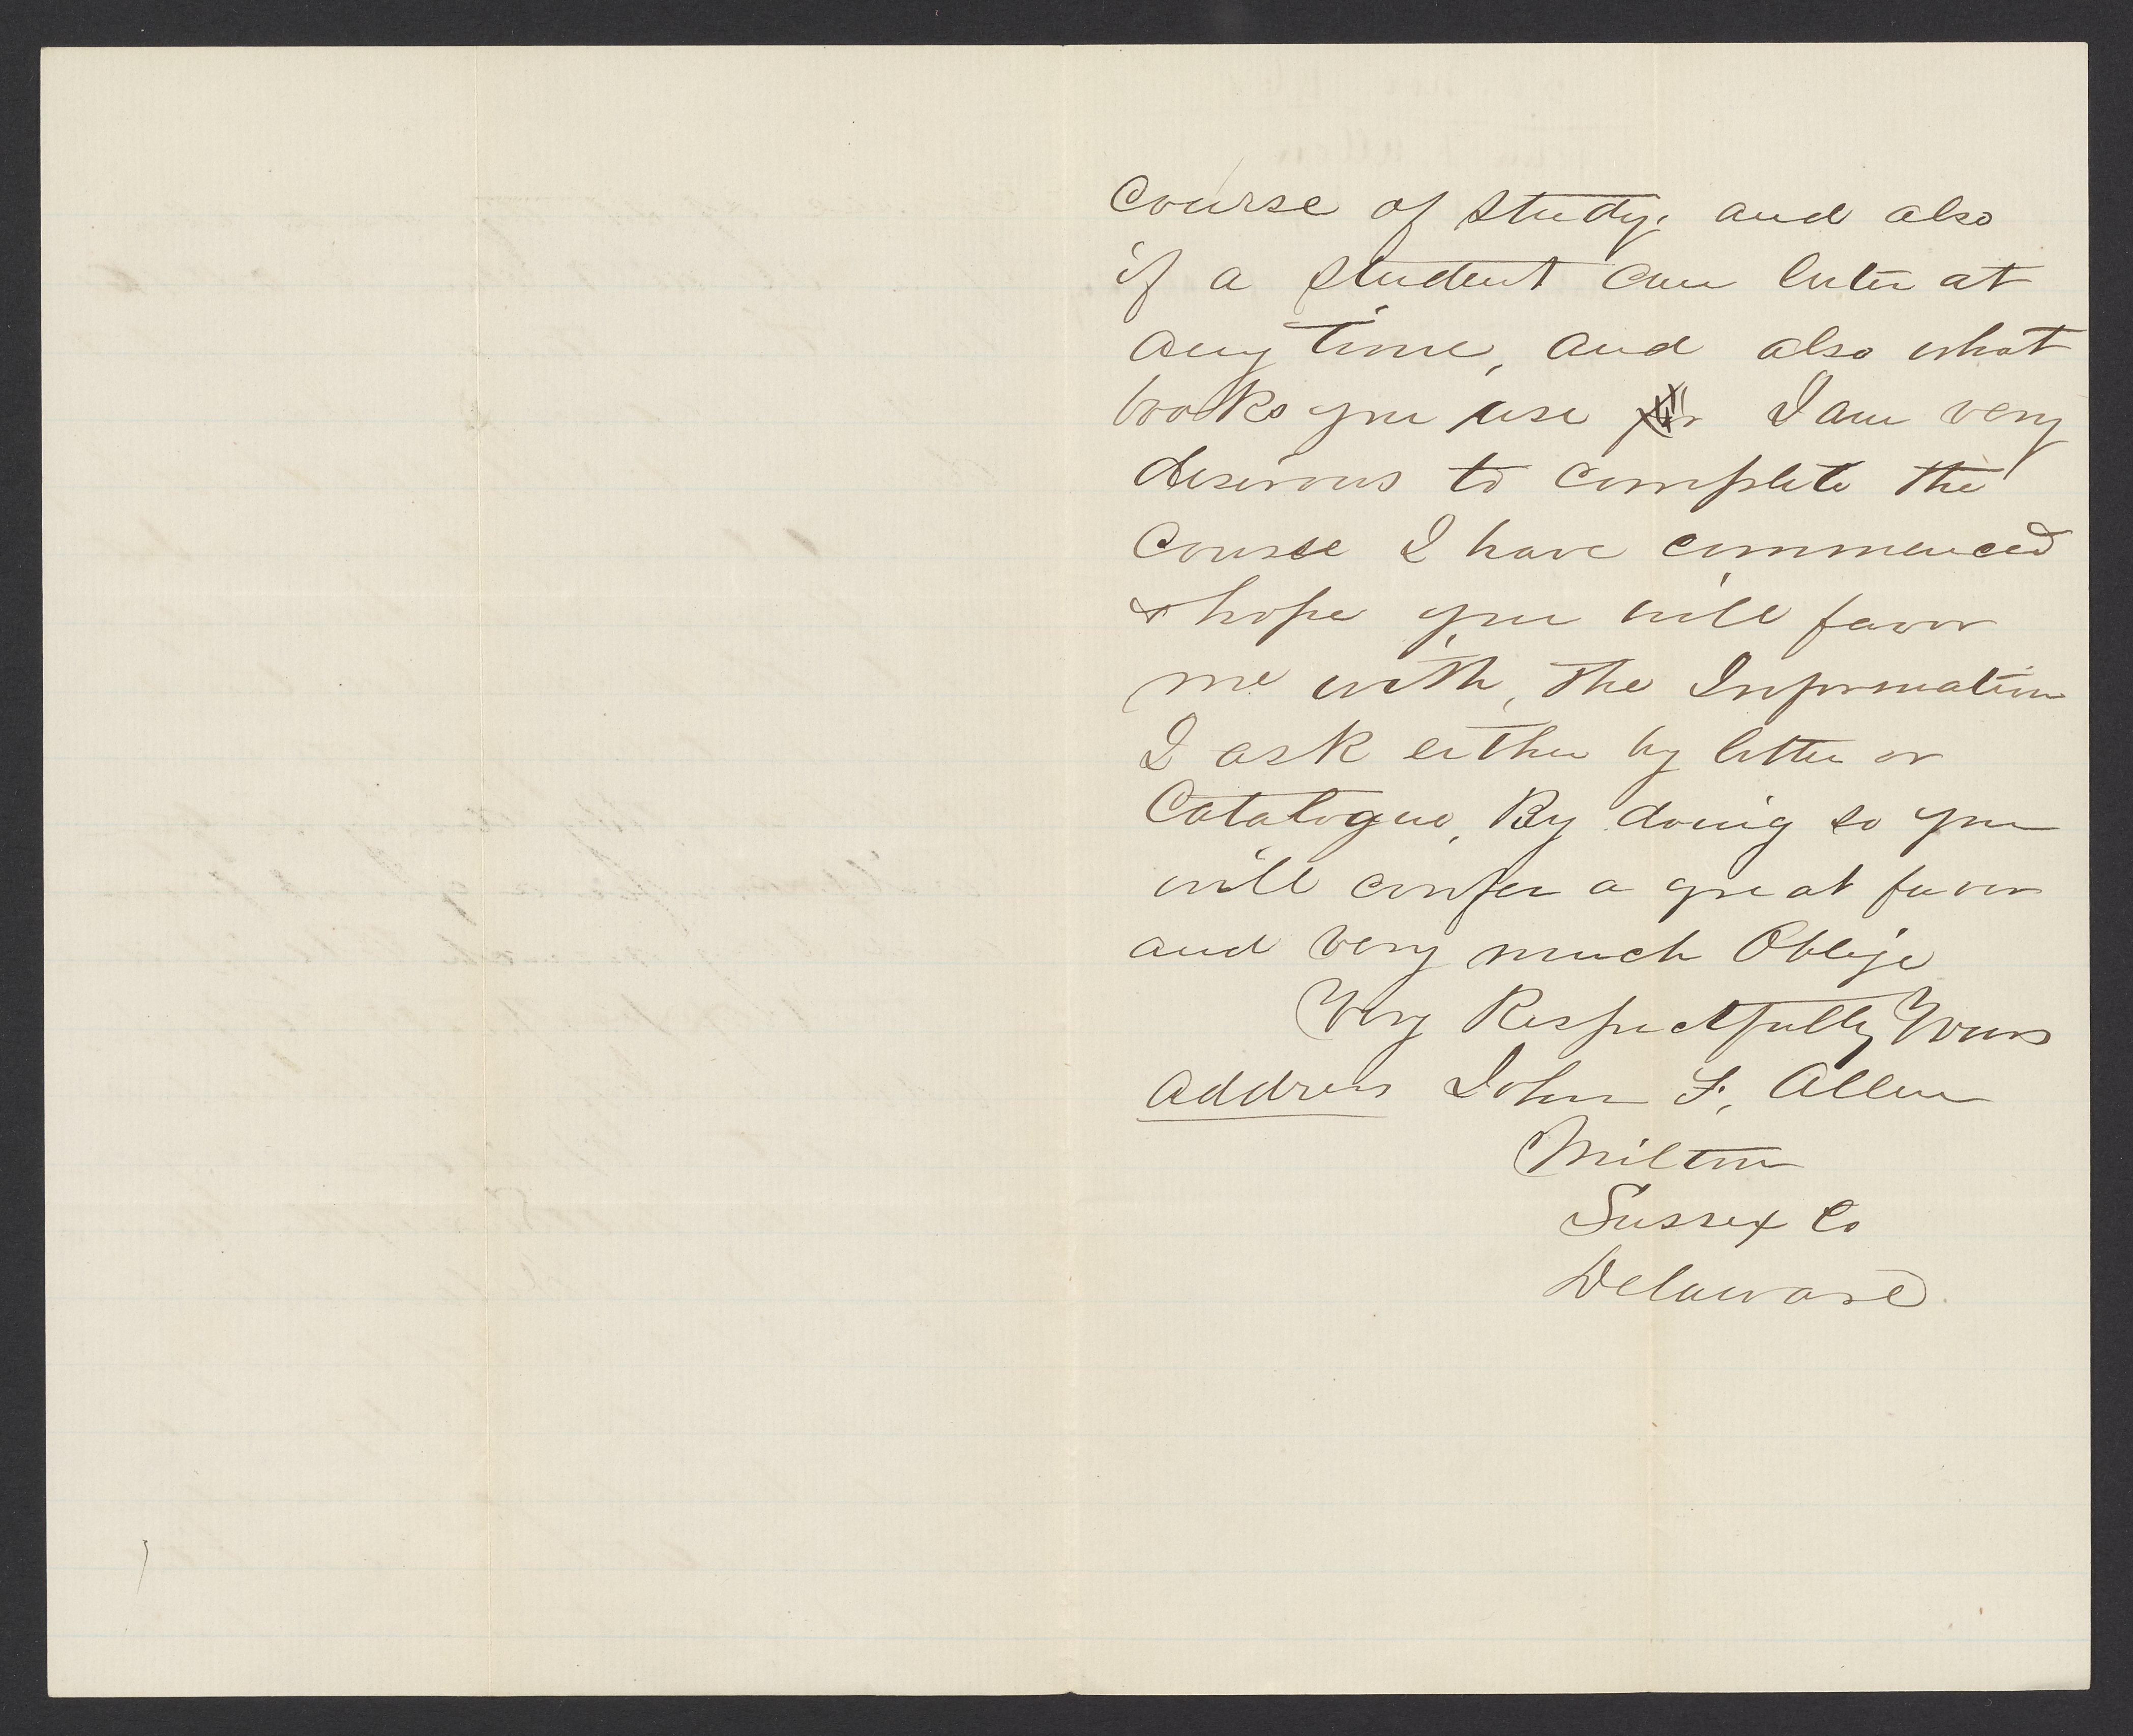 Course of Study; and also
if a Student can Enter at
any time, and also what
books you use I am very
desirous to complete the
Course I have commenced
& hope you will favor
me with, the Information
I ask either by letter or
Catalogue, By doing so you
will confer a great favor
and very much Oblige
Very Respectfully Yours
Address John F. Allen
Milton
Sussex Co
Delaware.